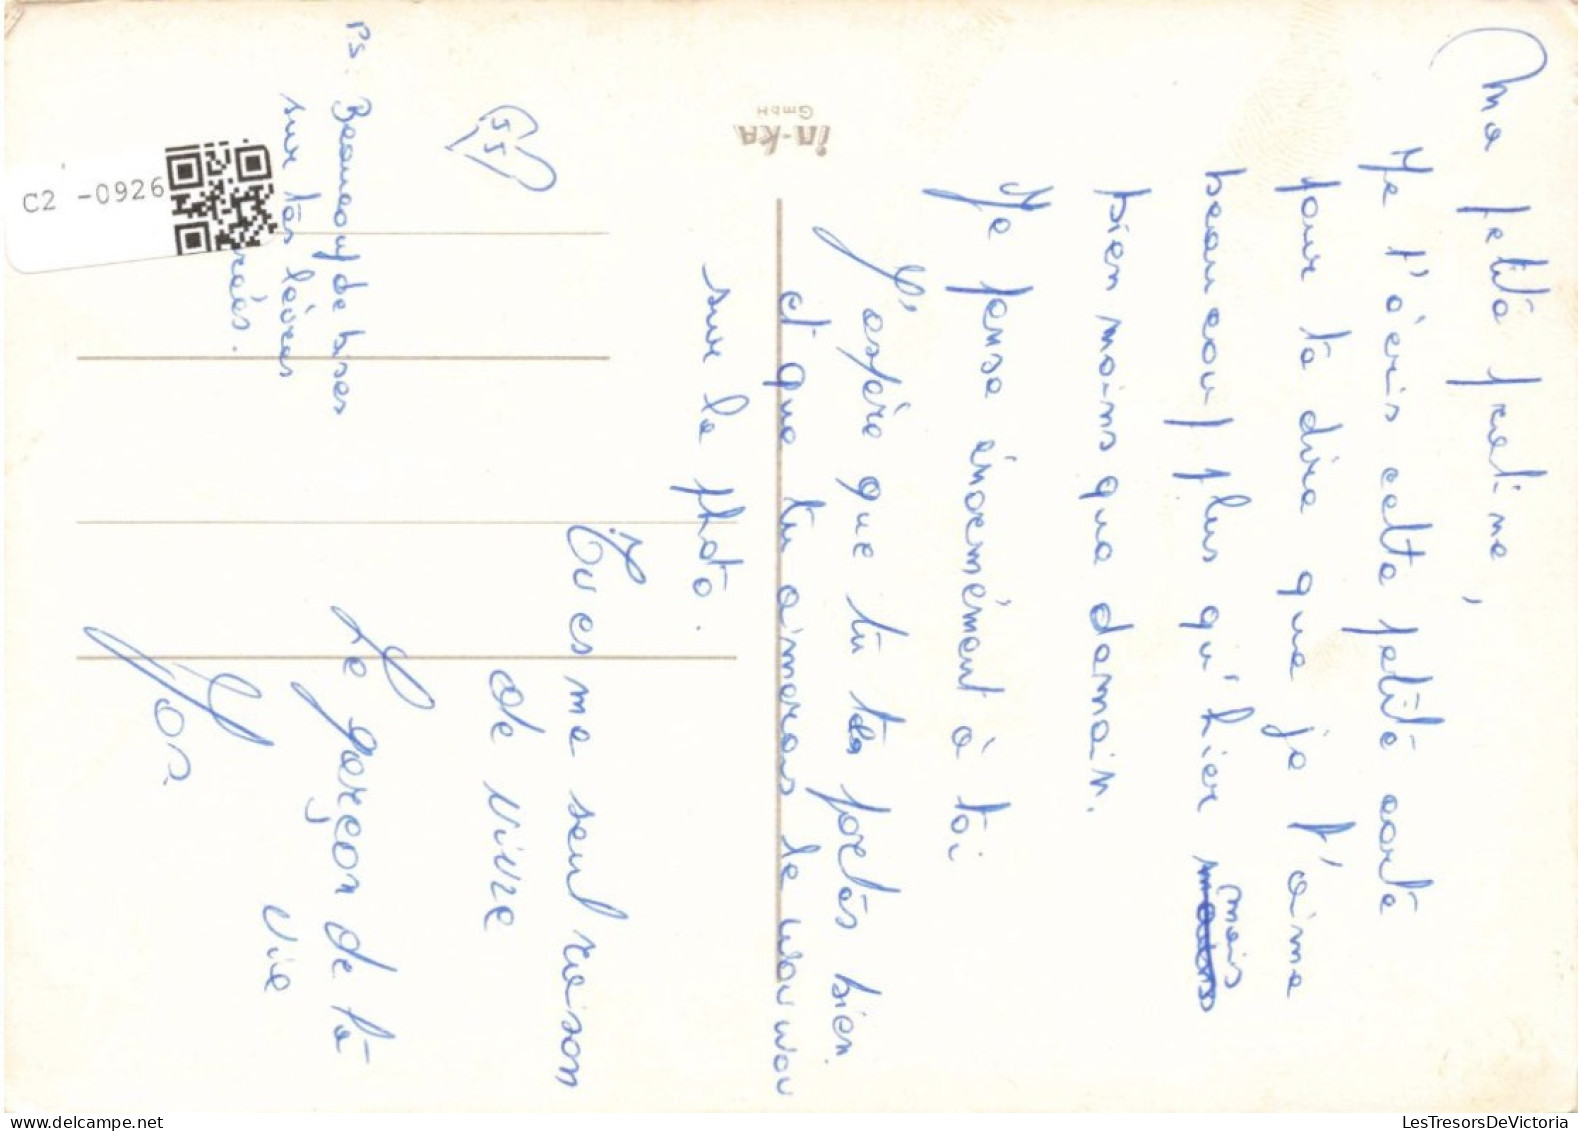 Ma petite fretine,
Je t'écris cette petite carte
pour te dire que je t'aime
beaucoup plus qu'hier mais
bien moins que demain.
Je pense énormément à toi
J'espère que tu te portes bien
et que tu aimeras le wouwou
sur la photo.
Tu es ma seul raison
de vivre
Le garçon de ta
vie
Jos
55
Ps. Beaucoup de bises
sur tes lèvres
rées.
in-ka
GmbH
C2 -0926
LesTresorsDeVictoria